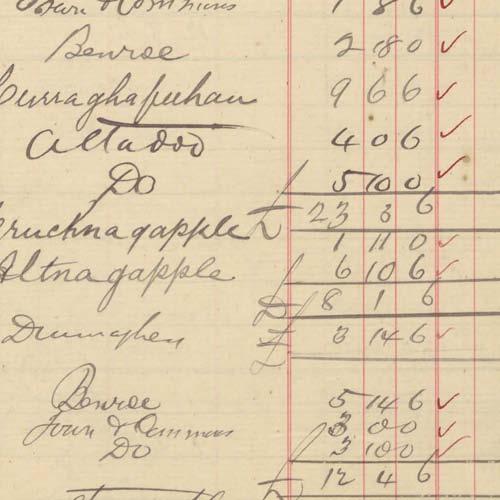 Town & Commons 1 8 6 ✓
Benroe 2 18 0 ✓
Curraghafeehan 9 6 6 ✓
Altadoo 4 0 6 ✓
Do 5 10 0 ✓
£ 23 3 6
ruchnagapple 1 11 0 ✓
Altnagapple 6 10 6 ✓
£ 8 1 6
£ 3 14 6 ✓
Benroe 5 14 6 ✓
Town & Commons 3 0 0 ✓
Do 3 10 0 ✓
£ 12 4 6